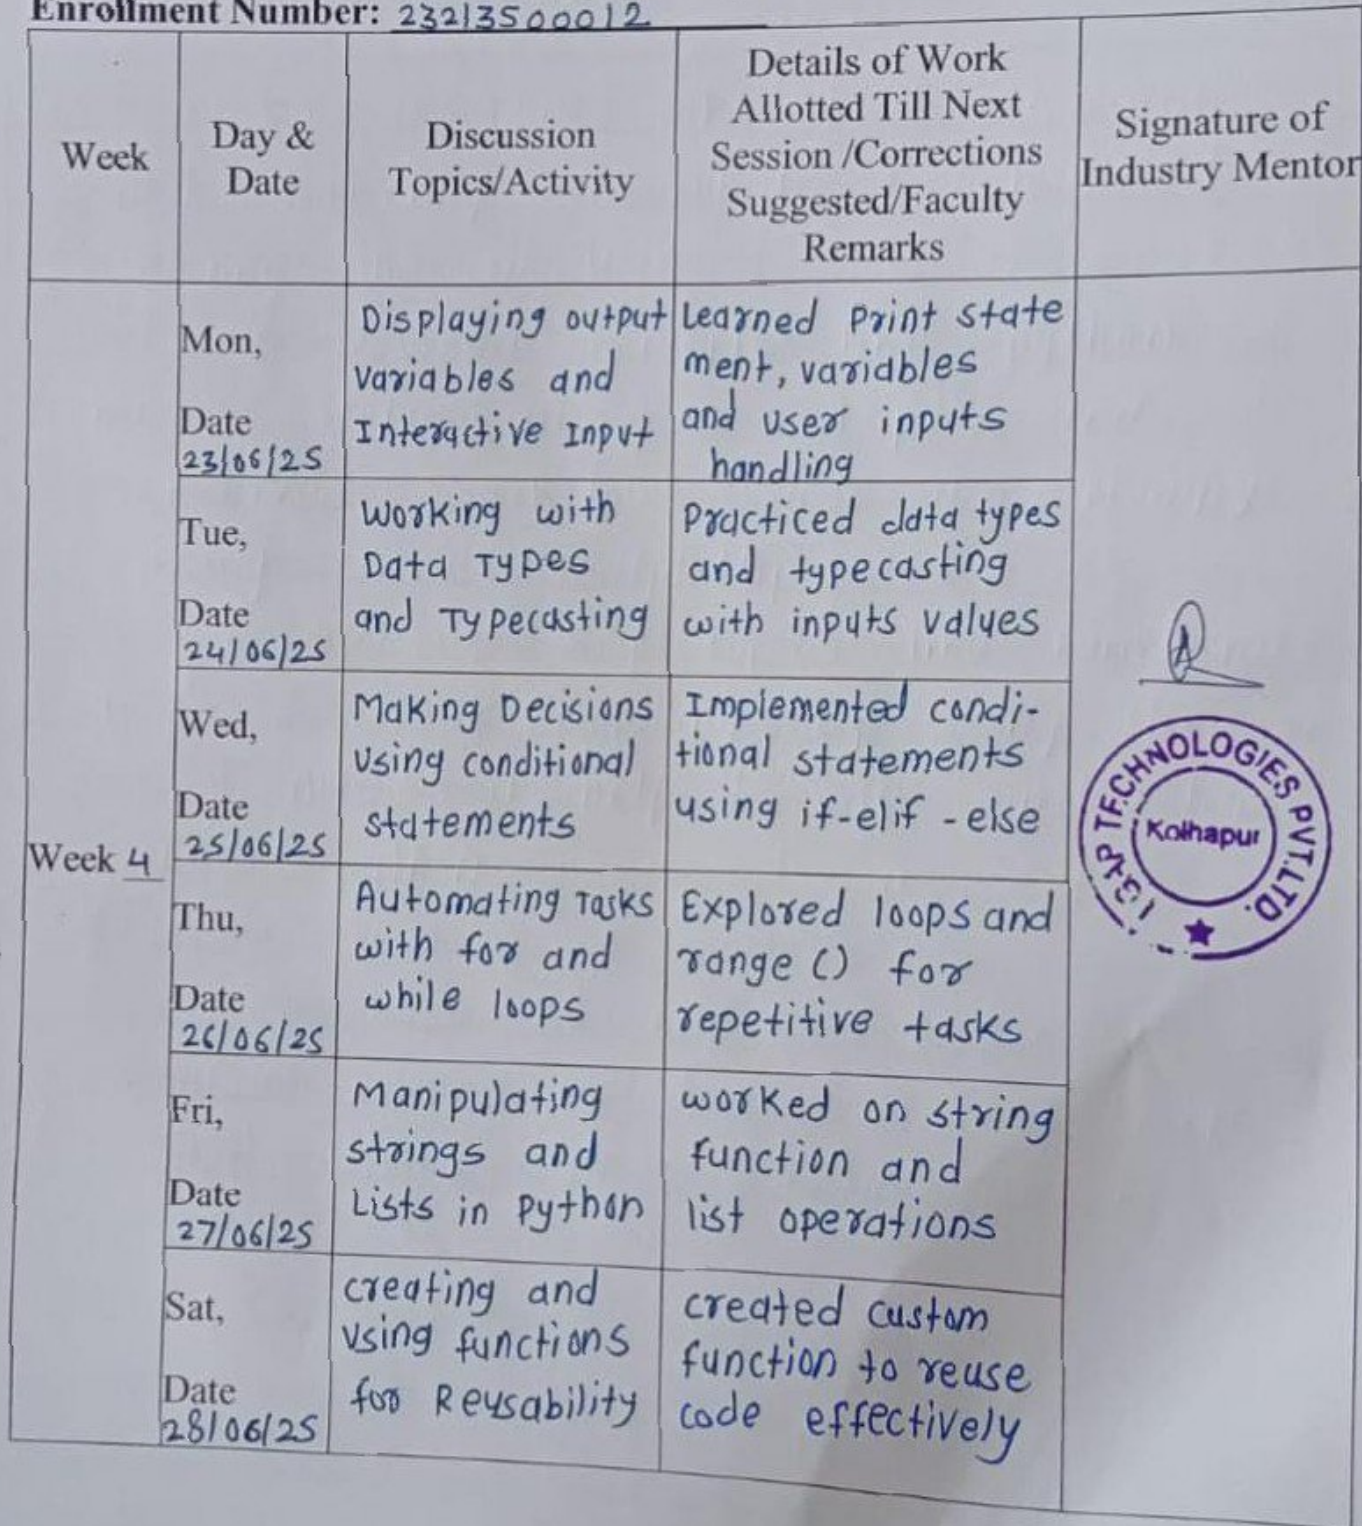 Enrollment Number: 23213500012
Week
Day &
Date
Discussion
Topics/Activity
Details of Work
Allotted Till Next
Session /Corrections
Suggested/Faculty
Remarks
Signature of
Industry Mentor
Week 4
Mon,
Date
23/06/25
Displaying output
variables and
Interactive Input
Learned Print state
ment, variables
and user inputs
handling
Tue,
Date
24/06/25
Working with
Data Types
and Typecasting
Practiced data types
and typecasting
with inputs values
Wed,
Date
25/06/25
Making Decisions
using conditional
statements
Implemented condi-
tional statements
using if-elif-else
Thu,
Date
26/06/25
Automating Tasks
with for and
while loops
Explored loops and
range () for
repetitive tasks
Fri,
Date
27/06/25
Manipulating
strings and
Lists in Python
worked on string
function and
list operations
Sat,
Date
28/06/25
creating and
using functions
for Reusability
created custom
function to reuse
code effectively
TECHNOLOGIES PVT.LTD.
Kolhapur